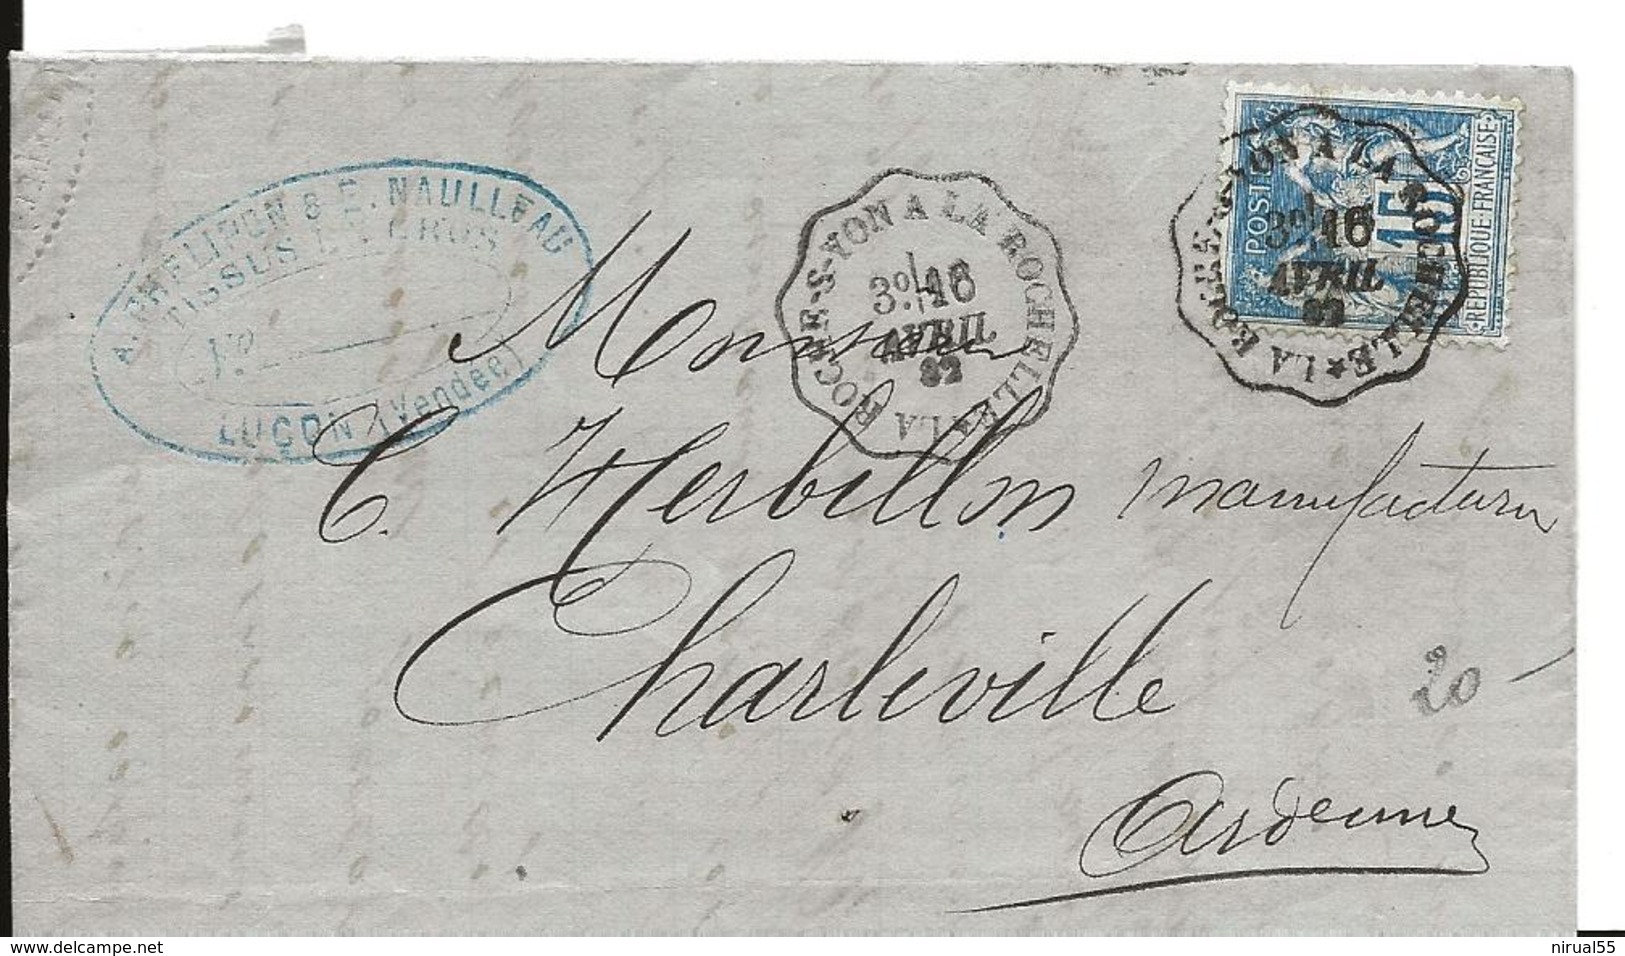 A. PHELIPON & E. NAULLEAU
TISSUS EN GROS
LUÇON (Vendée)
LA ROCHE-S-YON A LA ROCHELLE
3° 16
AVRIL
82
POSTES
15
REPUBLIQUE FRANÇAISE
LA ROCHE-S-YON A LA ROCHELLE
3° 16
AVRIL
82
Monsieur
C. Herbillon manufacturier
Charleville
20
Ardennes
www.delcampe.net
nirual55